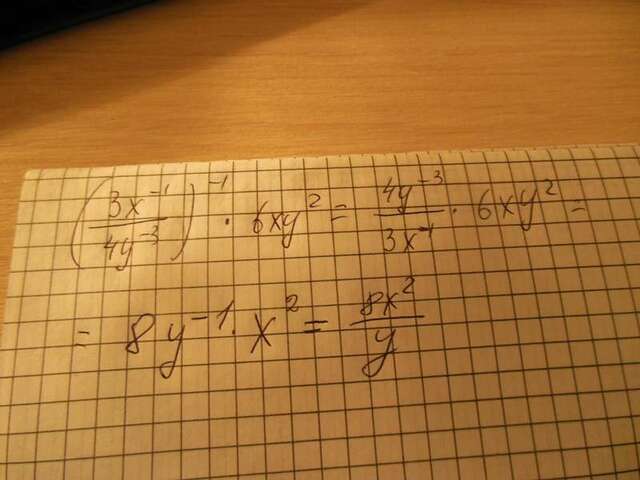 (3x⁻¹/4y⁻³)⁻¹ · 6xy² = 4y⁻³/3x⁻¹ · 6xy² =
= 8y⁻¹ · x² = 8x²/y